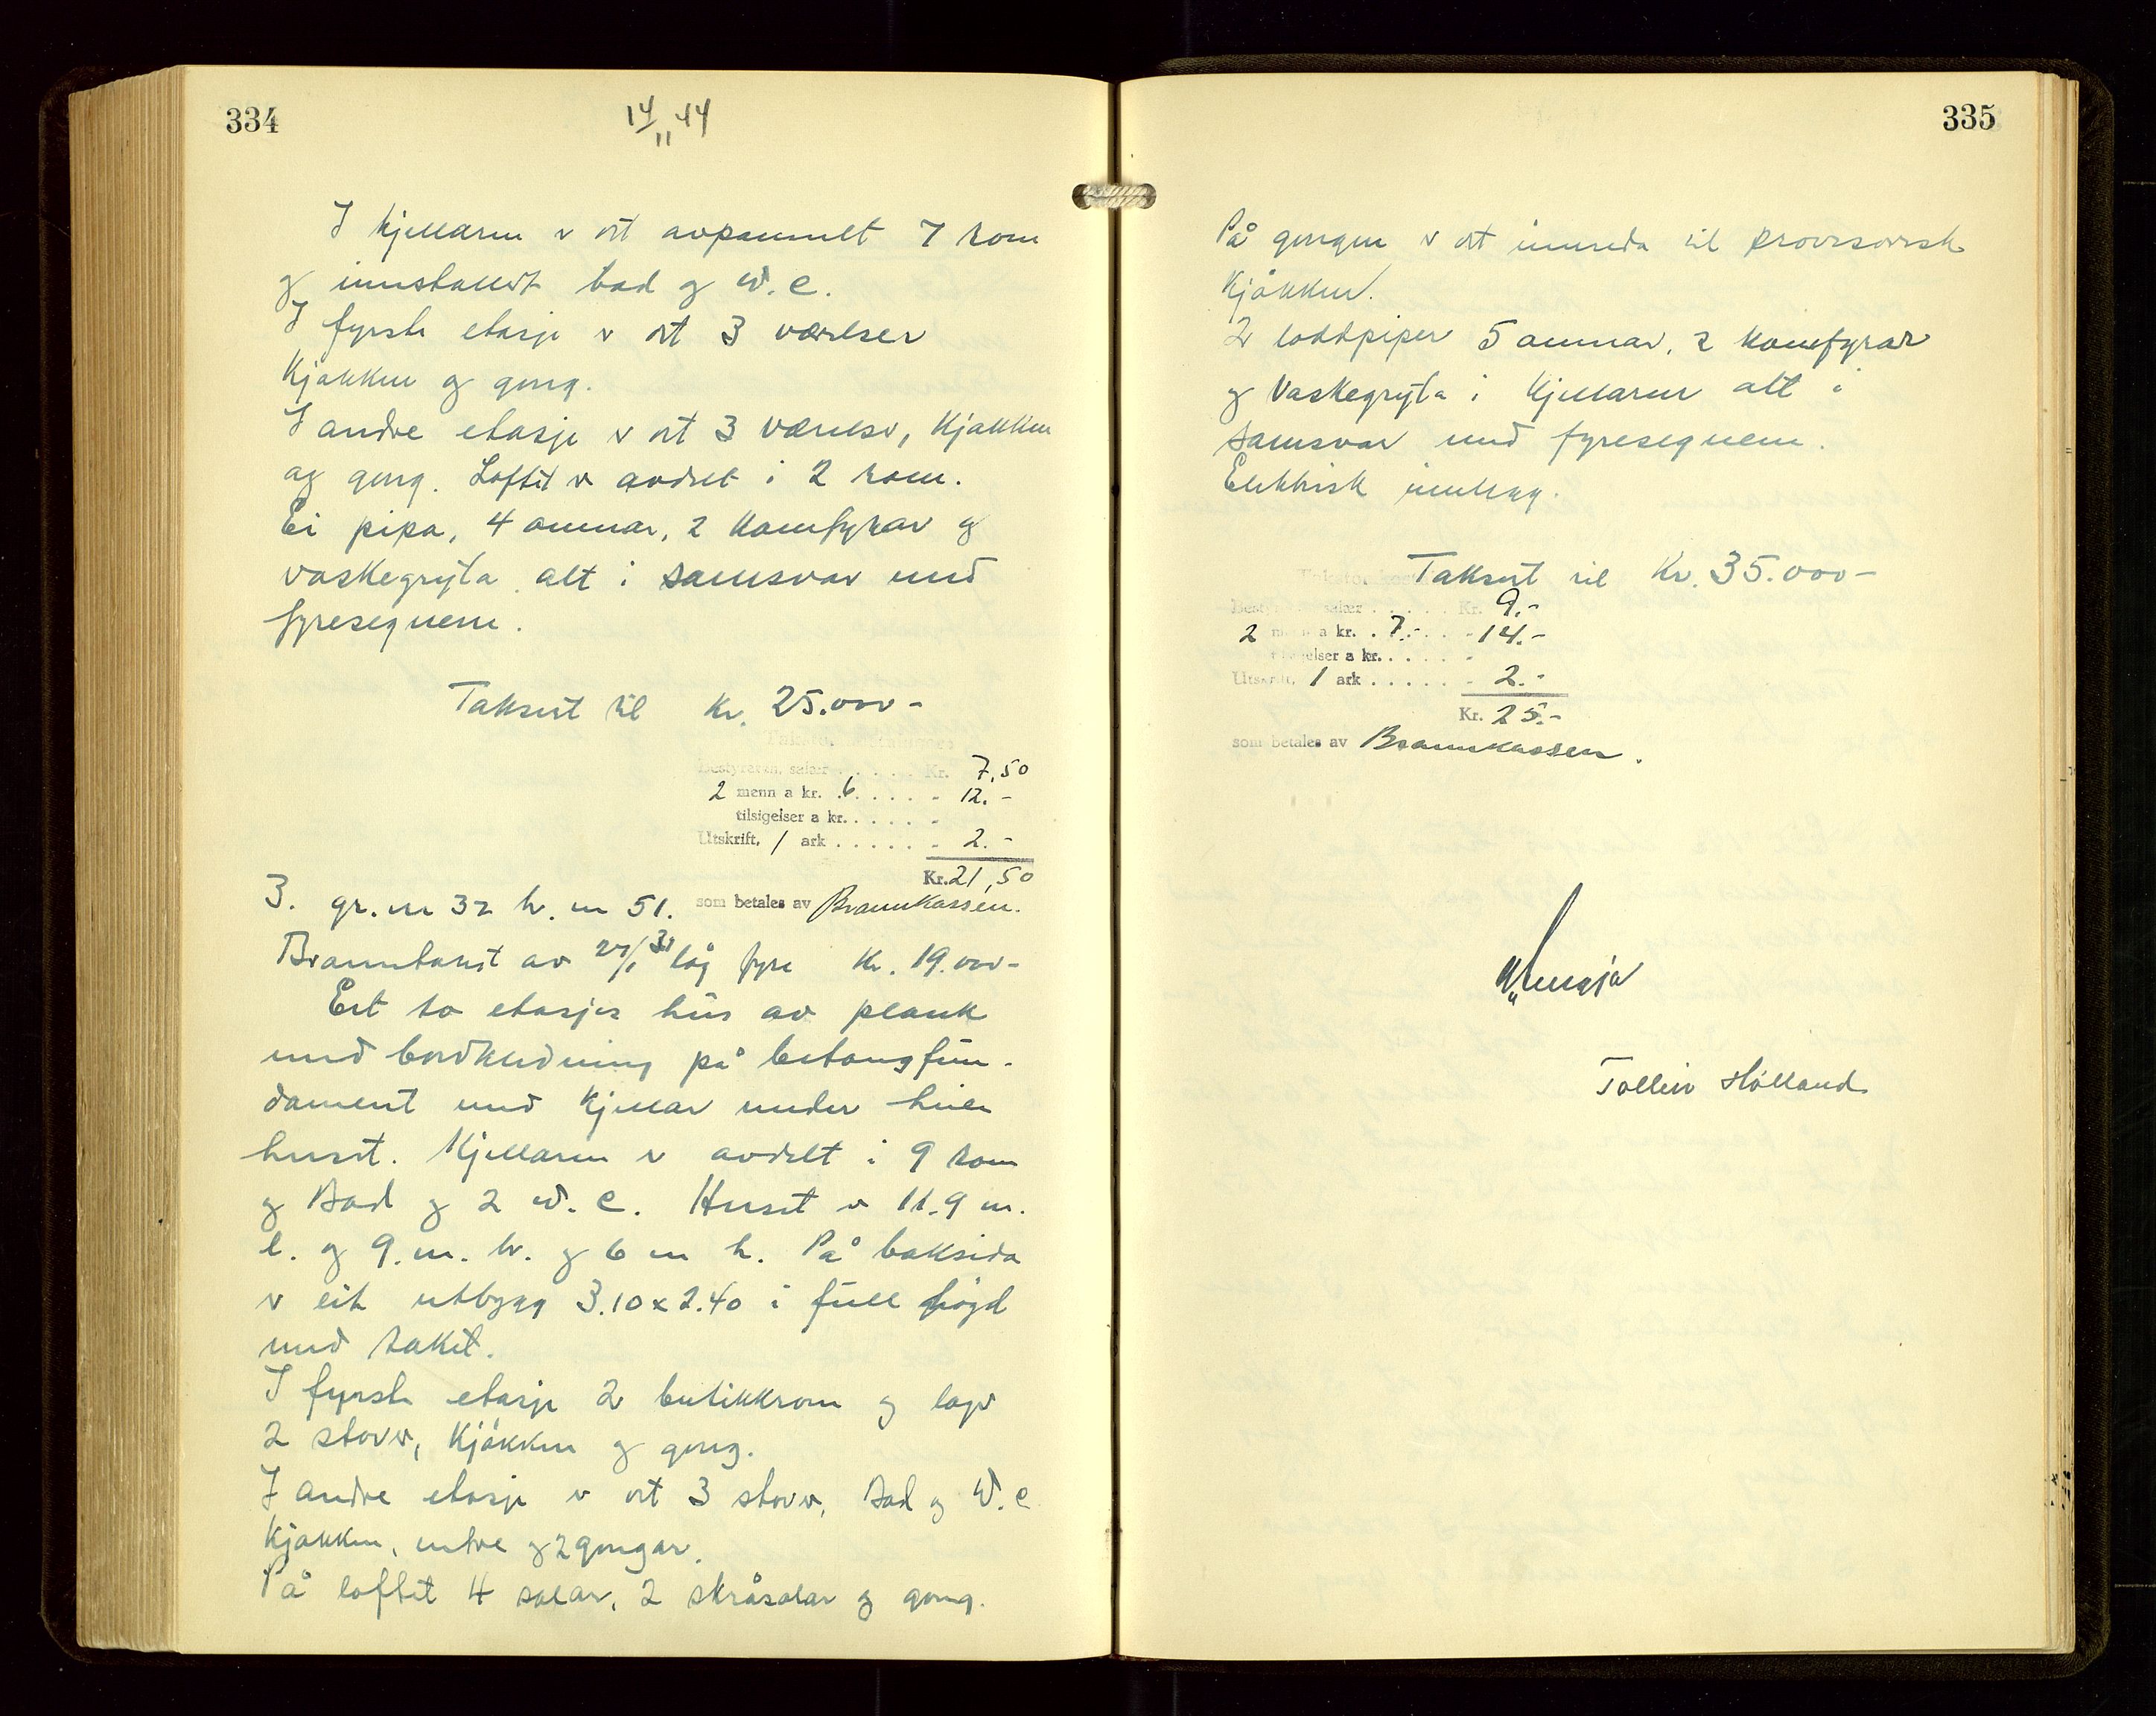 334
14/11 44
I kjellaren er det avpannelt 7 rom
og innstallert bad og W.C.
I fyrste etasje er det 3 værelser
Kjøkken og gong.
I andre etasje er det 3 værelser, Kjøkken
og gong. Loftet er avdelt i 2 rom.
Ei pipa, 4 omnar, 2 Komfyrar og
vaskegryta alt i samsvar med
fyresegnene.
Taksert til Kr. 25.000-
Bestyreren, salær . . . . . Kr. 7,50
2 menn a kr. 6 . . . . . - 12.-
tilsigelser a kr. . . . . . -
Utskrift, 1 ark . . . . . . - 2.-
Kr. 21,50
3. gr. nr 32 br. nr 51. som betales av Brannkassen.
Branntakst av 27/1 31 låg fyre Kr. 19.000-
Eit to etasjes hus av plank
med bordkledning på betongfun-
dament med kjellar under heile
huset. Kjellaren er avdelt i 9 rom
og Bad og 2 W.C. Huset er 11.9 m.
l. og 9. m. br. og 6 m h. På baksida
er eit utbygg 3.10 x 2.40 i full høgd
med taket.
I fyrste etasje 2 butikkrom og lager
2 stover, Kjøkken og gong.
I andre etasje er det 3 stover, Bad og W.C
Kjøkken, entre og 2 gongar.
På loftet 4 salar, 2 skråsalar og gong.
335
På gongen er det innreda til provisorisk
Kjøkken.
2 loddpiper 5 omnar, 2 Komfyrar
og Vaskegryta i Kjellaren alt i
samsvar med fyresegnene.
Elektrisk innlegg.
Taksert til Kr. 35.000-
Bestyreren, salær . . . . . Kr. 9.-
2 menn a kr. 7.- . . . - 14.-
tilsigelser a kr. . . . . . -
Utskrift, 1 ark . . . . . - 2.-
Kr. 25.-
som betales av Brannkassen.
Tolleiv Hølland